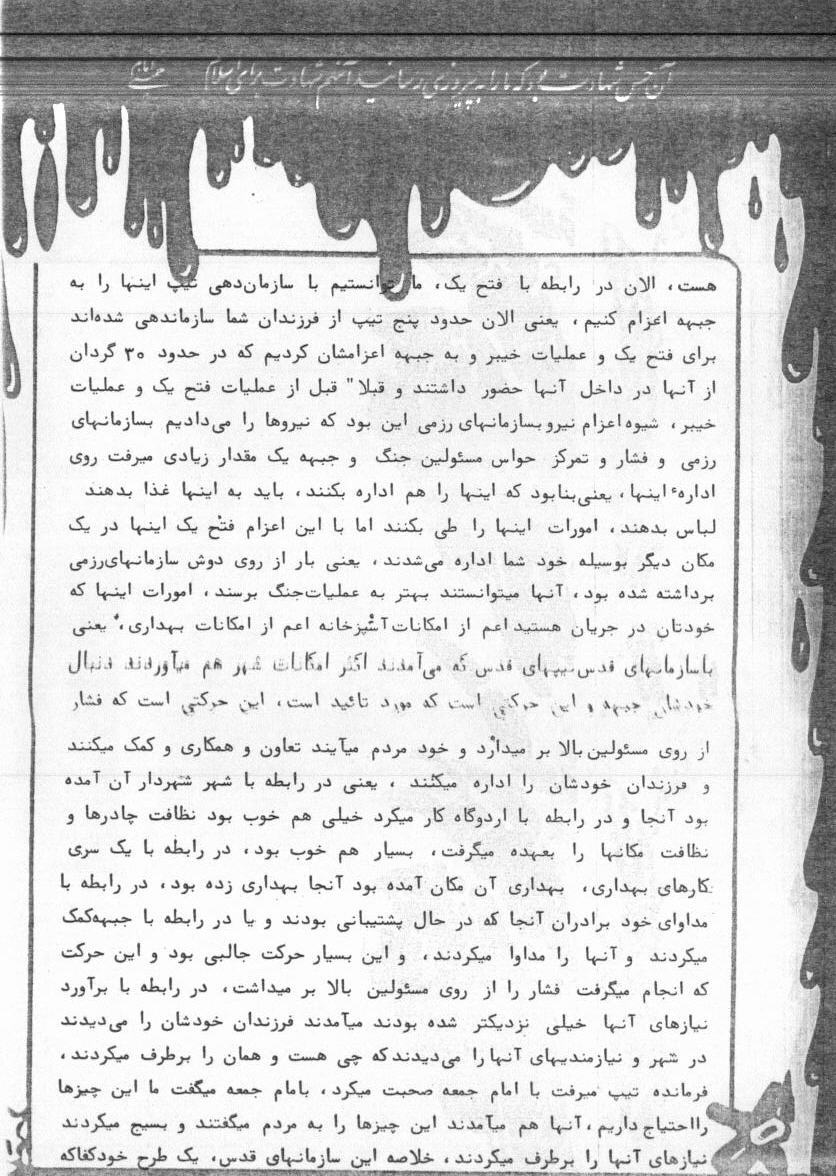 آن حس شهادت بود که ما را به پیروزی رسانید آنهم شهادت برای اسلام
هست، الان در رابطه با فتح یک، ما توانستیم با سازمان‌دهی تیپ اینها را به
جبهه اعزام کنیم، یعنی الان حدود پنج تیپ از فرزندان شما سازماندهی شده‌اند
برای فتح یک و عملیات خیبر و به جبهه اعزامشان کردیم که در حدود ۳۰ گردان
از آنها در داخل آنها حضور داشتند و قبلا" قبل از عملیات فتح یک و عملیات
خیبر، شیوه اعزام نیرو بسازمانهای رزمی این بود که نیروها را می‌دادیم بسازمانهای
رزمی و فشار و تمرکز حواس مسئولین جنگ و جبهه یک مقدار زیادی میرفت روی
ادارهٔ اینها، یعنی‌بنابود که اینها را هم اداره بکنند، باید به اینها غذا بدهند
لباس بدهند، امورات اینها را طی بکنند اما با این اعزام فتح یک اینها در یک
مکان دیگر بوسیله خود شما اداره می‌شدند، یعنی بار از روی دوش سازمانهای‌رزمی
برداشته شده بود، آنها میتوانستند بهتر به عملیات‌جنگ برسند، امورات اینها که
خودتان در جریان هستید اعم از امکانات آشپزخانه اعم از امکانات بهداری، یعنی
باسازمانهای قدس تیپهای قدس که می‌آمدند اکثر امکانات شهر هم میآوردند دنبال
خودشان جبهه و این حرکتی است که مورد تائید است، این حرکتی است که فشار
از روی مسئولین بالا بر میدارد و خود مردم میآیند تعاون و همکاری و کمک میکنند
و فرزندان خودشان را اداره میکنند ، یعنی در رابطه با شهر شهردار آن آمده
بود آنجا و در رابطه با اردوگاه کار میکرد خیلی هم خوب بود نظافت چادرها و
نظافت مکانها را بعهده میگرفت، بسیار هم خوب بود، در رابطه با یک سری
کارهای بهداری، بهداری آن مکان آمده بود آنجا بهداری زده بود، در رابطه با
مداوای خود برادران آنجا که در حال پشتیبانی بودند و یا در رابطه با جبهه‌کمک
میکردند و آنها را مداوا میکردند، و این بسیار حرکت جالبی بود و این حرکت
که انجام میگرفت فشار را از روی مسئولین بالا بر میداشت، در رابطه با برآورد
نیازهای آنها خیلی نزدیکتر شده بودند میآمدند فرزندان خودشان را می‌دیدند
در شهر و نیازمندیهای آنها را می‌دیدند که چی هست و همان را برطرف میکردند،
فرمانده تیپ میرفت با امام جمعه صحبت میکرد، بامام جمعه میگفت ما این چیزها
رااحتیاج داریم، آنها هم میآمدند این چیزها را به مردم میگفتند و بسیج میکردند
نیازهای آنها را برطرف میکردند، خلاصه این سازمانهای قدس، یک طرح خودکفاکه